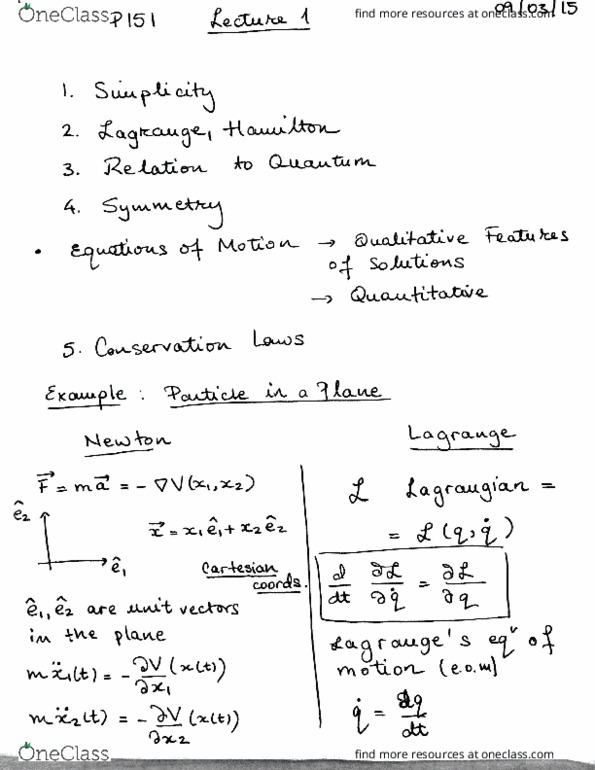 OneClass
P151
Lecture 1
find more resources at oneclass.com
09/03/15
1. Simplicity
2. Lagrange, Hamilton
3. Relation to Quantum
4. Symmetry
• Equations of Motion → Qualitative Features
of Solutions
→ Quantitative
5. Conservation Laws
Example : Particle in a Plane
Newton
F⃗ = ma⃗ = - ∇V(x₁, x₂)
ê₂
x⃗ = x₁ê₁ + x₂ê₂
ê₁
Cartesian
coords.
ê₁, ê₂ are unit vectors
in the plane
mẍ₁(t) = - ∂V/∂x₁ (x(t))
mẍ₂(t) = - ∂V/∂x₂ (x(t))
Lagrange
ℒ Lagrangian =
= ℒ (q, q̇)
d/dt ∂ℒ/∂q̇ = ∂ℒ/∂q
Lagrange's eqⁿ of
motion (e.o.m)
q̇ = dq/dt
OneClass
find more resources at oneclass.com